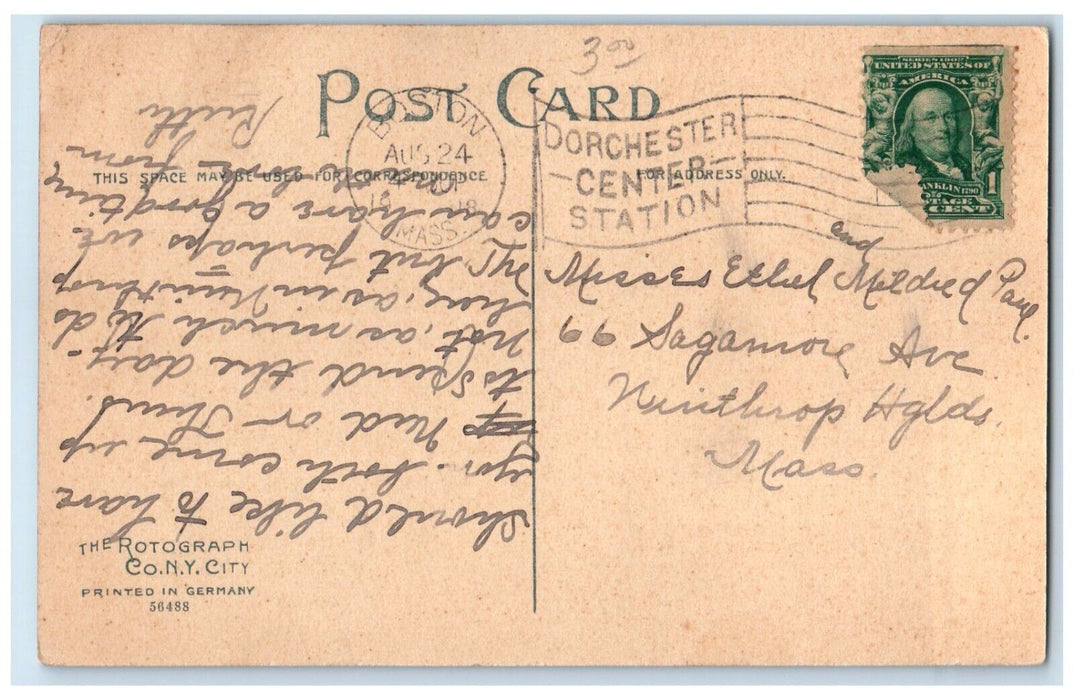 3.00
POST CARD
BOSTON
AUG 24
MASS.
DORCHESTER
CENTER
STATION
SERIES 1902
UNITED STATES OF
AMERICA
FRANKLIN 1790
POSTAGE
1 CENT
THIS SPACE MAY BE USED FOR CORRESPONDENCE
FOR ADDRESS ONLY.
Should like to have
you both come up
Wed or Thurs.
to spend the day-
Not, as much to do
here, as in Winthrop
but perhaps we
can have a good time
from
Ruth
and
Misses Ethel Mildred
66 Sagamore Ave
Winthrop Hglds.
Mass.
THE ROTOGRAPH
CO. N.Y. CITY
PRINTED IN GERMANY
56488